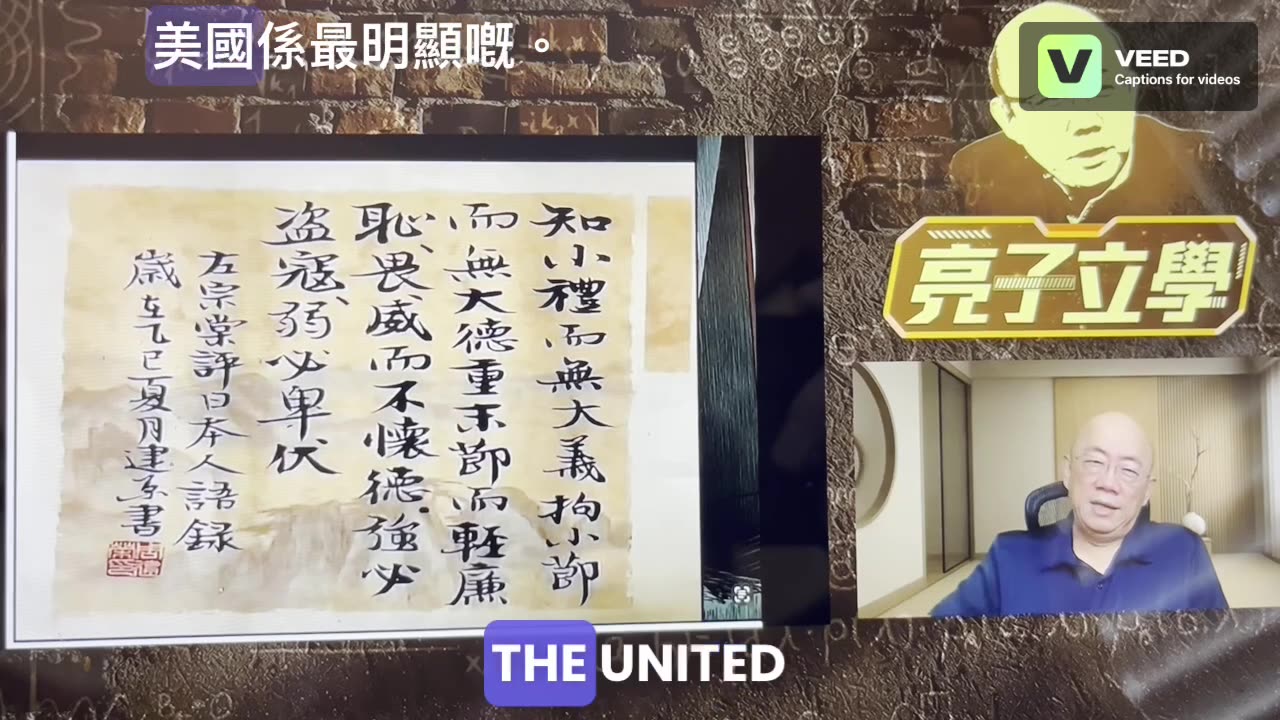 美國係最明顯嘅。
VEED
Captions for videos
亮了立學
知小禮而無大義拘小節
而無大德重末節而輕廉
恥、畏威而不懷德、強必
盗寇、弱必卑伏
左宗棠評日本人語録
嵗在乙巳夏月建書
THE UNITED